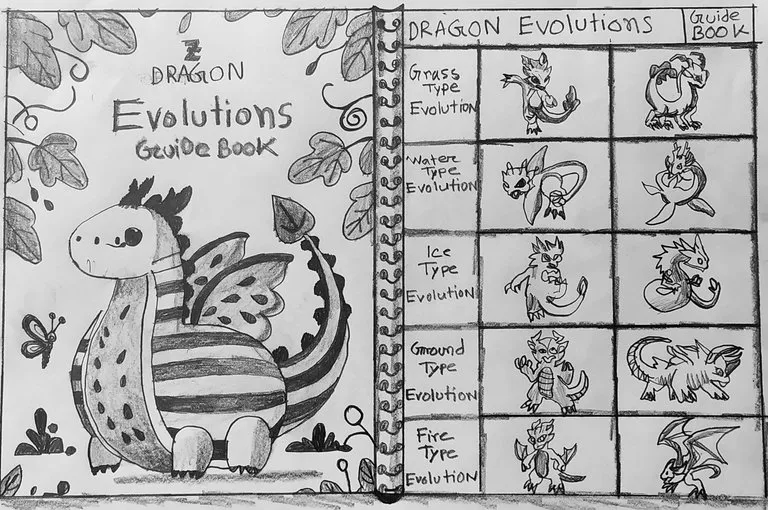 Z
DRAGON
Evolutions
Guide Book
DRAGON Evolutions
Guide
BOOK
Grass
Type
Evolution
Water
Type
Evolution
Ice
Type
Evolution
Ground
Type
Evolution
Fire
Type
Evolution